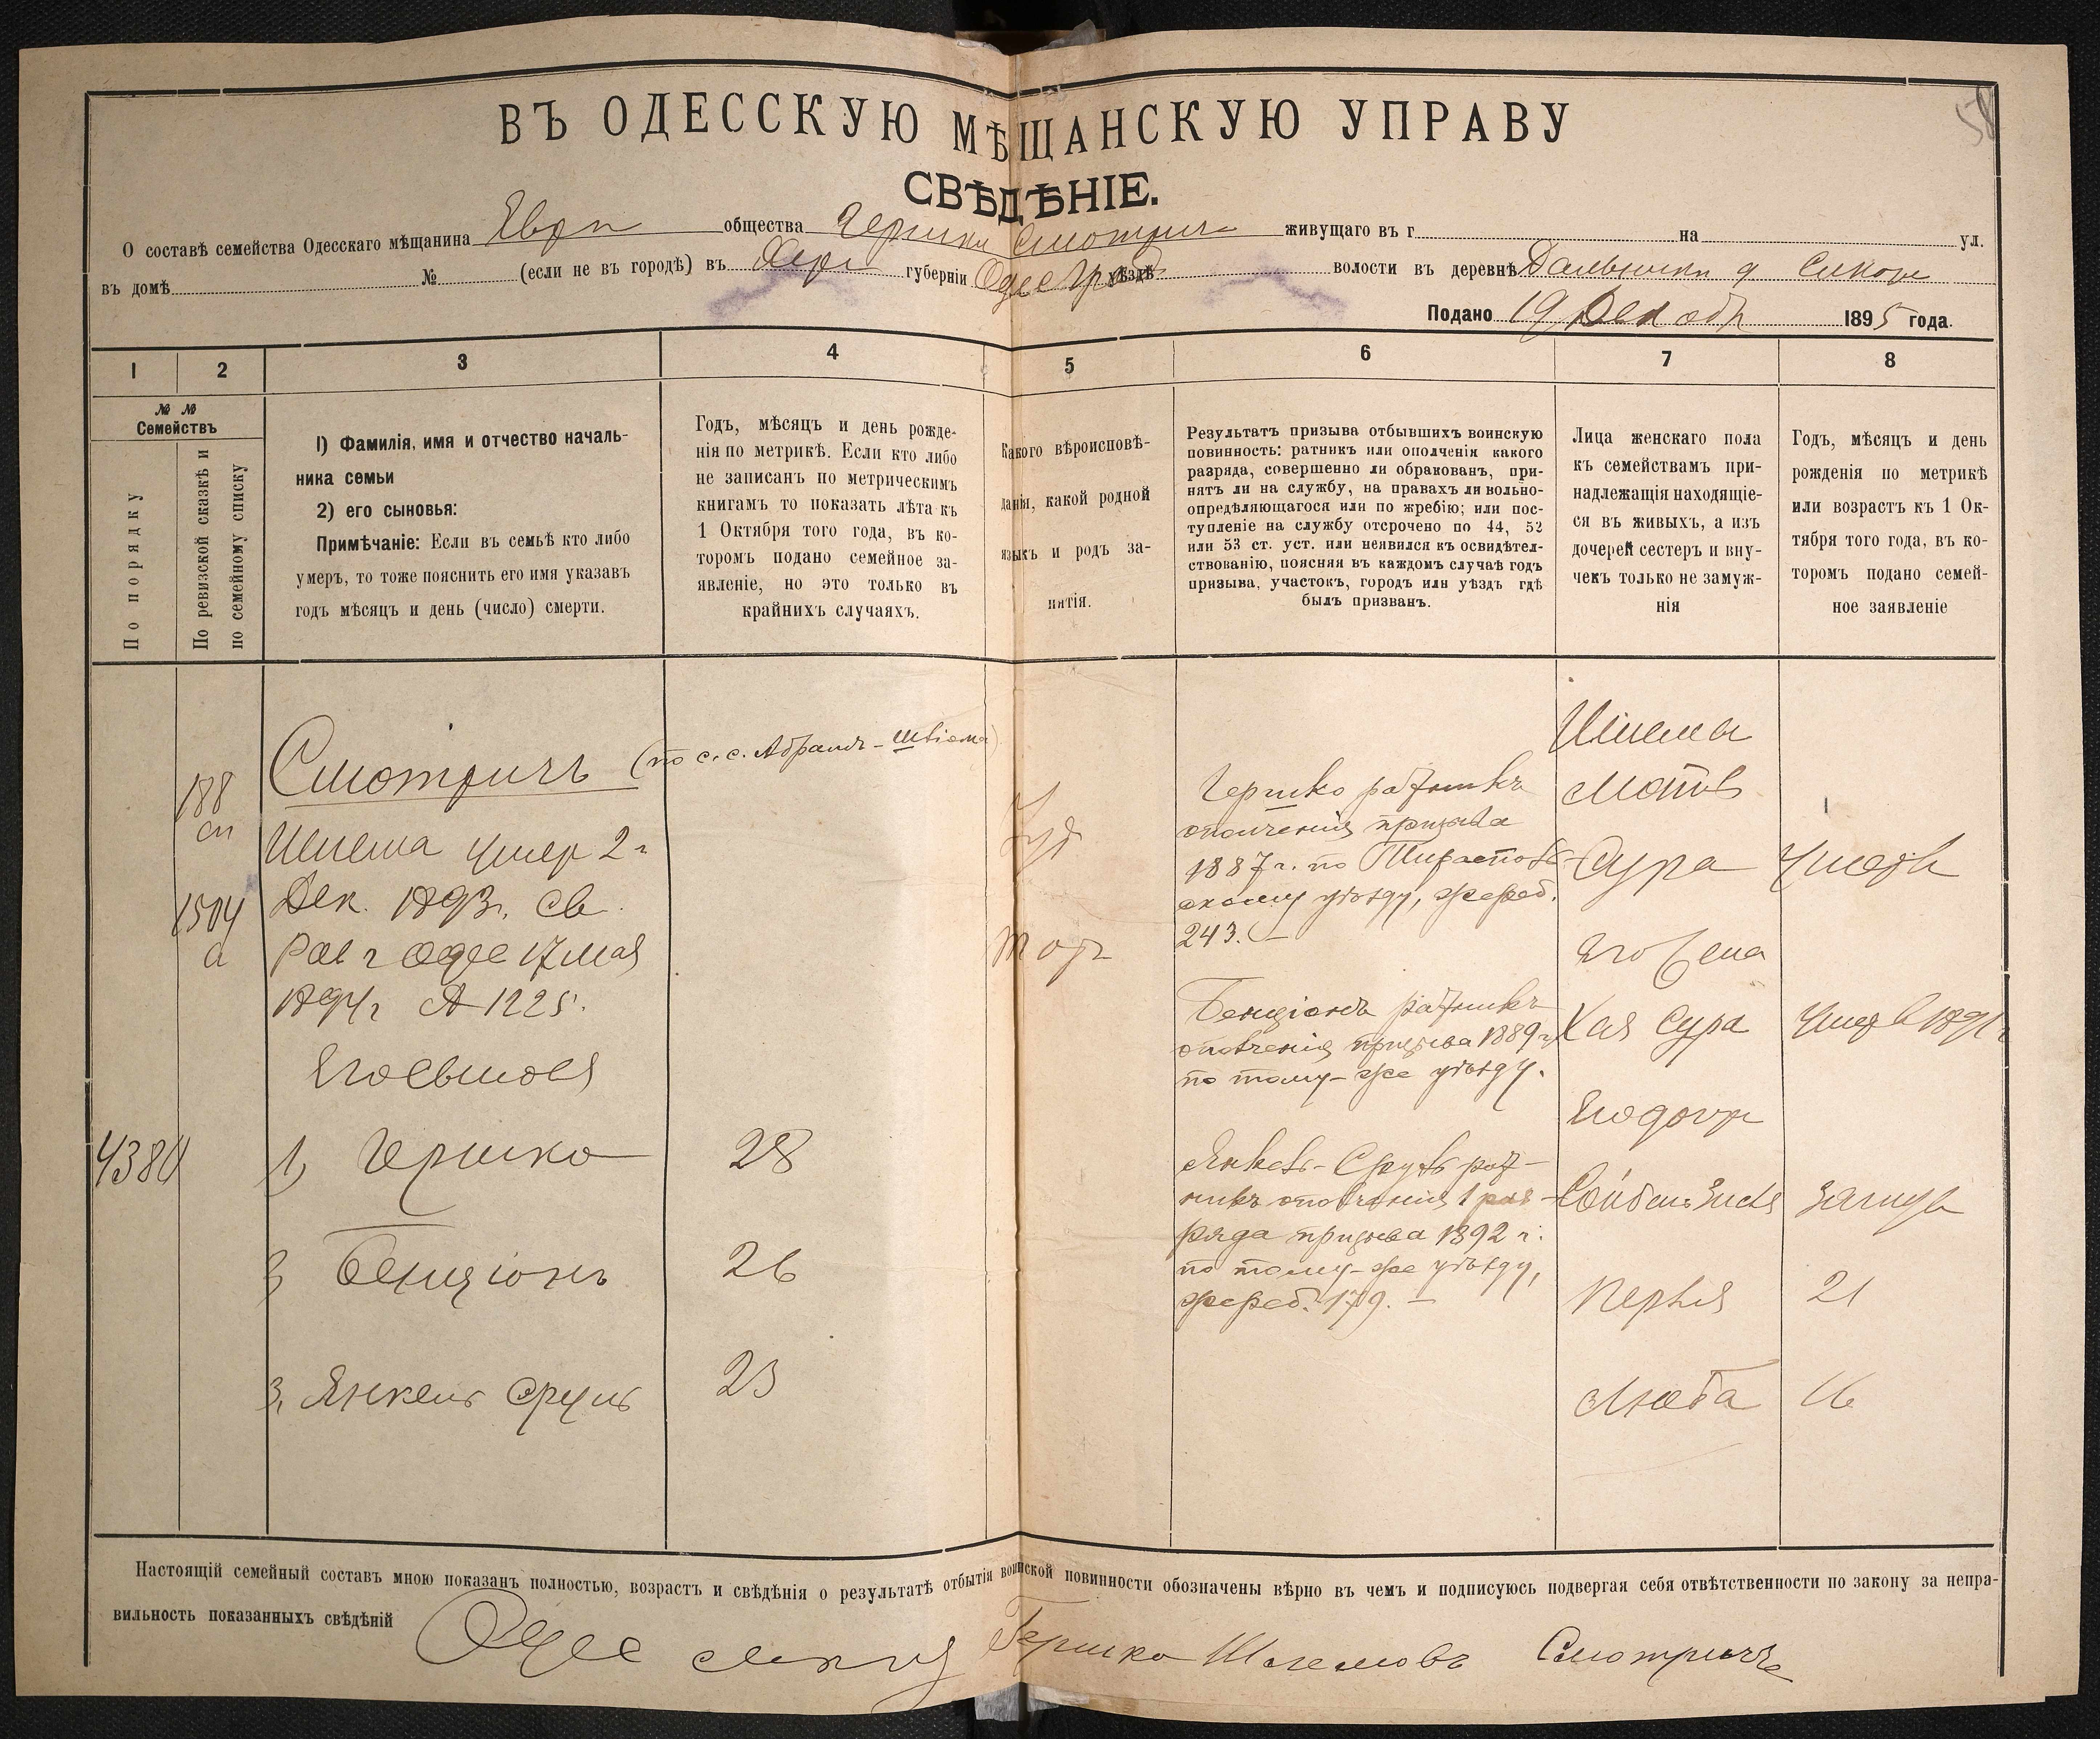 58
ВЪ ОДЕССКУЮ МѢЩАНСКУЮ УПРАВУ
СВѢДѢНІЕ.
О составѣ семейства Одесскаго мѣщанина Евр общества Гершки Смотрич живущаго въ г. на ул.
въ домѣ № (если не въ городѣ) въ Хер губерніи Одес уѣздѣ волости въ деревнѣ Дальники
Подано 19 Декабр 1895 года.
1 2 3 4 5 6 7 8
№ №
Семействъ
По порядку
По ревизской сказкѣ и
по семейному списку
1) Фамилія, имя и отчество началь-
ника семьи
2) его сыновья:
Примѣчаніе: Если въ семьѣ кто либо
умеръ, то тоже пояснить его имя указавъ
годъ мѣсяцъ и день (число) смерти.
Годъ, мѣсяцъ и день рожде-
нія по метрикѣ. Если кто либо
не записанъ по метрическимъ
книгамъ то показать лѣта къ
1 Октября того года, въ ко-
торомъ подано семейное за-
явленіе, но это только въ
крайнихъ случаяхъ.
Какого вѣроисповѣ-
данія, какой родной
языкъ и родъ за-
нятія.
Результатъ призыва отбывшихъ воинскую
повинность: ратникъ или ополченія какого
разряда, совершенно ли обракованъ, при-
нятъ ли на службу, на правахъ ли вольно-
опредѣляющагося или по жребію; или пос-
тупленіе на службу отсрочено по 44, 52
или 53 ст. уст. или неявился къ освидѣтел-
ствованію, поясняя въ каждомъ случаѣ годъ
призыва, участокъ, городъ или уѣздъ гдѣ
былъ призванъ.
Лица женскаго пола
къ семействамъ при-
надлежащія находящіе-
ся въ живыхъ, а изъ
дочерей сестеръ и вну-
чекъ только не замуж-
нія
Годъ, мѣсяцъ и день
рожденія по метрикѣ
или возрастъ къ 1 Ок-
тября того года, въ ко-
торомъ подано семей-
ное заявленіе
188
сп
1504
а
4380
Смотричъ (по с.с. Абрамъ-Шліома)
Шлема умер 2 г
Дек. 1893 г. Св.
Рав г Одес 17 мая
1894 г № 1225.
Его сыновя
1, Гершко 28
2, Бенціонъ 26
3, Янкель Сруль 23
Іуд
торг
Гершко ратникъ
ополченія призыва
1887 г. по Тирасполь-
скому уѣзду, жереб.
243. —
Бенціонъ ратникъ
ополченія призыва 1889 г.
по тому-же уѣзду.
Янкель-Сруль рат-
никъ ополченія 1 раз-
ряда призыва 1892 г.
по тому-же уѣзду,
жереб. 179. —
Шлемы
мать
Сура умерла
Его жена
Хая Сура умер в 1891 г
Его дочери
Сойбель Зися замуж
Перля 21
Люба 16
Настоящій семейный составъ мною показанъ полностью, возрастъ и свѣдѣнія о результатѣ отбытія воинской повинности обозначены вѣрно въ чемъ и подписуюсь подвергая себя отвѣтственности по закону за непра-
вильность показанныхъ свѣдѣній Одес Гершко Шлемовъ Смотричъ